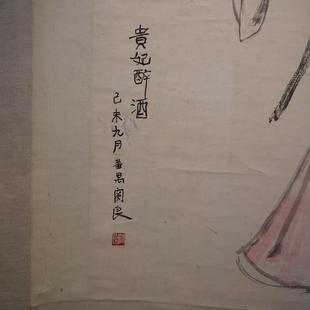 貴妃醉酒
己未九月番禺關良